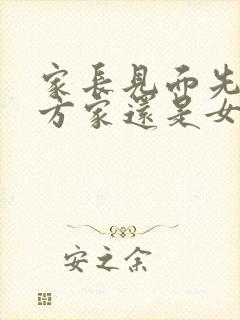 家長見面先
方家還是女
安之余